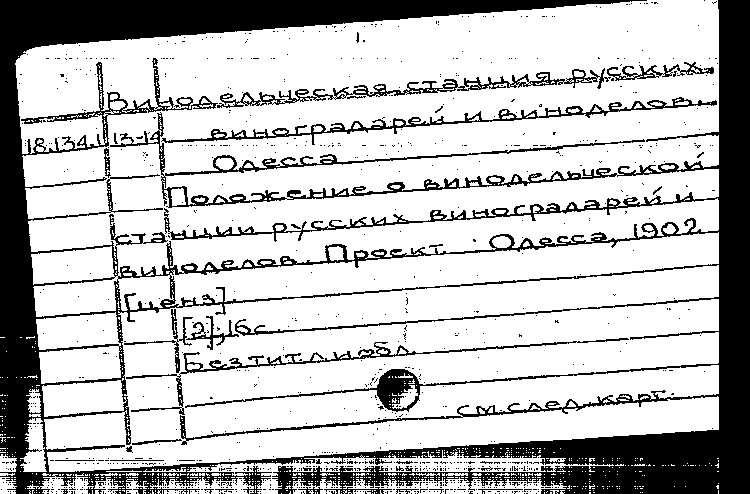 1.
Винодельческая станция русских
18.134.1 13-14 виноградарей и виноделов.
Одесса
Положение о винодельческой
станции русских виноградарей и
виноделов. Проект. Одесса, 1902
[ценз].
[2];16с.
Без тит.л.и обл.
см.след.карт.